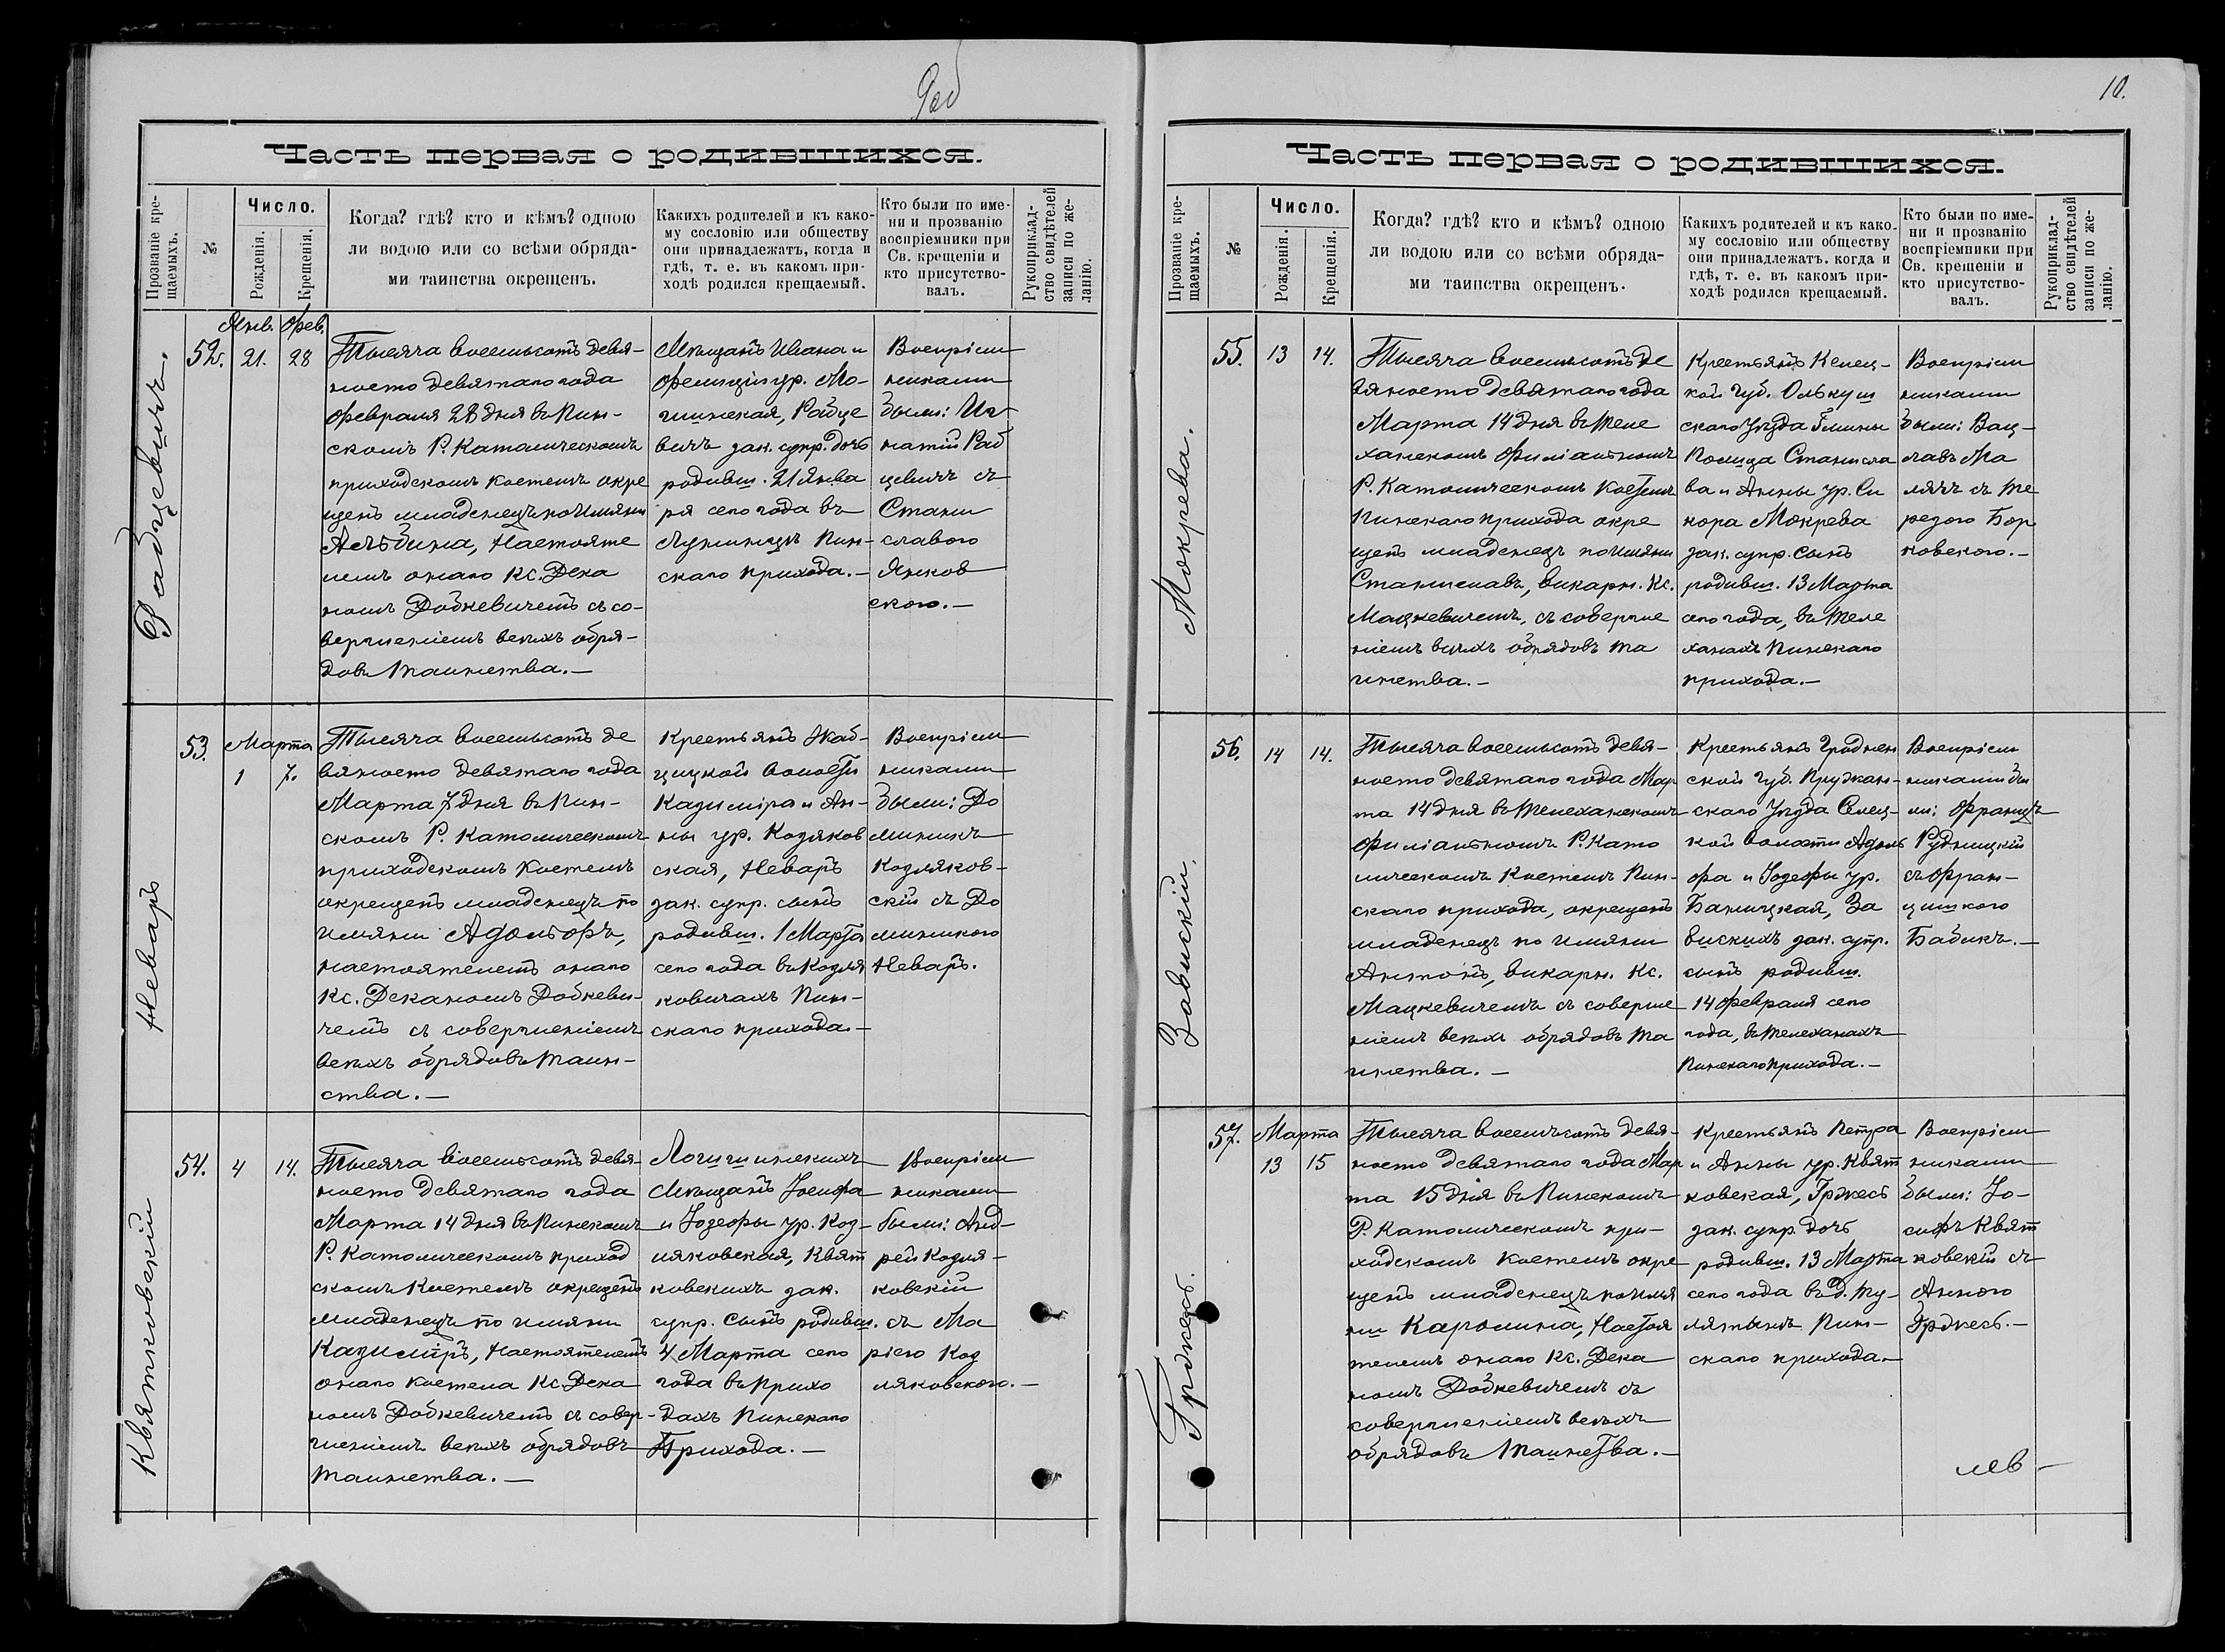 9об
Часть первая о родившихся.
Прозваніе кре-
щаемыхъ.
№
Число.
Рожденія.
Крещенія.
Когда? гдѣ? кто и кѣмъ? одною
ли водою или со всѣми обряда-
ми таинства окрещенъ.
Какихъ родителей и къ како-
му сословію или обществу
они принадлежатъ, когда и
гдѣ, т. е. въ какомъ при-
ходѣ родился крещаемый.
Кто были по име-
ни и прозванію
воспріемники при
Св. крещеніи и
кто присутство-
валъ.
Рукоприклад-
ство свидѣтелей
записи по же-
ланію.
Рабцевичъ.
52.
Янв. Фев.
21. 28
Тысяча восемьсотъ девя-
носто девятаго года
Февраля 28 дня въ Пин-
скомъ Р. Католическомъ
приходскомъ костелѣ окре
щенъ младенецъ по имяни
Альбина, Настояте
лемъ онаго Кс. Дека
номъ Добкевичемъ съ со-
вершеніемъ всѣхъ обря-
довъ таинства.—
Мѣщанъ Ивана и
Фелиціи ур. Мо-
гинская, Рабце
вичъ зак. супр. дочь
родивш. 21 Янва
ря сего года въ
Лунинцѣ Пин-
скаго прихода.—
Воспріем
никами
были: Иг
натій Раб
цевичъ съ
Стани
славою
Янков
скою.—
Неваръ
53.
Марта
1 7.
Тысяча восемьсотъ де
вяносто девятаго года
Марта 7 дня въ Пин-
скомъ Р. Католическомъ
приходскомъ костелѣ
окрещенъ младенецъ по
имяни Адольфъ,
настоятелемъ онаго
Кс. Деканомъ Добкеви-
чемъ съ совершеніемъ
всѣхъ обрядовъ таин-
ства.—
Крестьянъ Жаб-
чицкой волости
Казиміра и Ан-
ны ур. Козляков
ская, Неваръ
зак. супр. сынъ
родивш. 1 Марта
сего года въ Козля
ковичахъ Пин-
скаго прихода.—
Воспріем
никами
были: До
миникъ
Козляков-
скій съ До
миникою
Неваръ.
Квятковскій
54.
4 14.
Тысяча восемьсотъ девя-
носто девятаго года
Марта 14 дня въ Пинскомъ
Р. Католическомъ приход
скомъ костелѣ окрещенъ
младенецъ по имяни
Казиміръ, Настоятелемъ
онаго костела Кс. Дека
номъ Добкевичемъ съ совер-
шеніемъ всѣхъ обрядовъ
таинства.—
Логишинскихъ
Мѣщанъ Іосифа
и Іозефы ур. Коз-
ляковская, Квят
ковскихъ зак.
супр. сынъ родивш.
4 Марта сего
года въ Прихо
дахъ Пинскаго
Прихода.—
Воспріем
никами
были: Анд-
рей Козля-
ковскій
съ Ма
ріею Коз
ляковскою.—
10.
Часть первая о родившихся.
Прозваніе кре-
щаемыхъ.
№
Число.
Рожденія.
Крещенія.
Когда? гдѣ? кто и кѣмъ? одною
ли водою или со всѣми обряда-
ми таинства окрещенъ.
Какихъ родителей и къ како-
му сословію или обществу
они принадлежатъ. когда и
гдѣ, т. е. въ какомъ при-
ходѣ родился крещаемый.
Кто были по име-
ни и прозванію
воспріемники при
Св. крещеніи и
кто присутство-
валъ.
Рукоприклад-
ство свидѣтелей
записи по же-
ланію.
Мокрева.
55.
13 14.
Тысяча восемьсотъ де
вяносто девятаго года
Марта 14 дня въ Теле
ханскомъ Филіальномъ
Р. Католическомъ костелѣ
Пинскаго прихода окре
щенъ младенецъ по имяни
Станиславъ, викарн. Кс.
Мацкевичемъ, съ соверше
ніемъ всѣхъ обрядовъ та
инства.—
Крестьянъ Келец-
кой Губ. Олькуш
скаго Уѣзда Гмины
Станисла
ва и Анны ур. Си
кора Мокрева
зак. супр. сынъ
родивш. 13 Марта
сего года, въ Теле
ханахъ Пинскаго
прихода.—
Воспріем
никами
были: Вац-
лавъ Ма
лячъ съ Те
резою Бор
ковскою.—
Завискій.
56.
14 14.
Тысяча восемьсотъ девя-
носто девятаго года Мар
та 14 дня въ Телеханскомъ
Филіальномъ Р. Като
лическомъ костелѣ Пин-
скаго прихода, окрещенъ
младенецъ по имяни
Антонъ, викарн. Кс.
Мацкевичемъ съ соверше
ніемъ всѣхъ обрядовъ та
инства.—
Крестьянъ Гроднен
ской Губ. Пружан-
скаго Уѣзда Селец-
кой волости Адоль
фа и Іозефы ур.
Баницкая, За
вискихъ зак. супр.
сынъ родивш.
14 Февраля сего
года, въ Телеханахъ
Пинскаго прихода.—
Воспріем
никами бы
ли: Францъ
Рудницкій
съ Фран-
цишкою
Бабикъ.—
Грджесь.
57.
Марта
13 15
Тысяча восемьсотъ девя-
носто девятаго года Мар
та 15 дня въ Пинскомъ
Р. Католическомъ при-
ходскомъ костелѣ окре
щенъ младенецъ по имя
ни Каролина, Настоя
телемъ онаго Кс. Дека
номъ Добкевичемъ съ
совершеніемъ всѣхъ
обрядовъ таинства.—
Крестьянъ Петра
и Анны ур. Квят
ковская, Грджесь
зак. супр. дочь
родивш. 13 Марта
сего года въ д. Ту-
лятынъ Пин-
скаго прихода—
Воспріем
никами
были: Іо-
сифъ Квят
ковскій съ
Анною
Грджесь.—